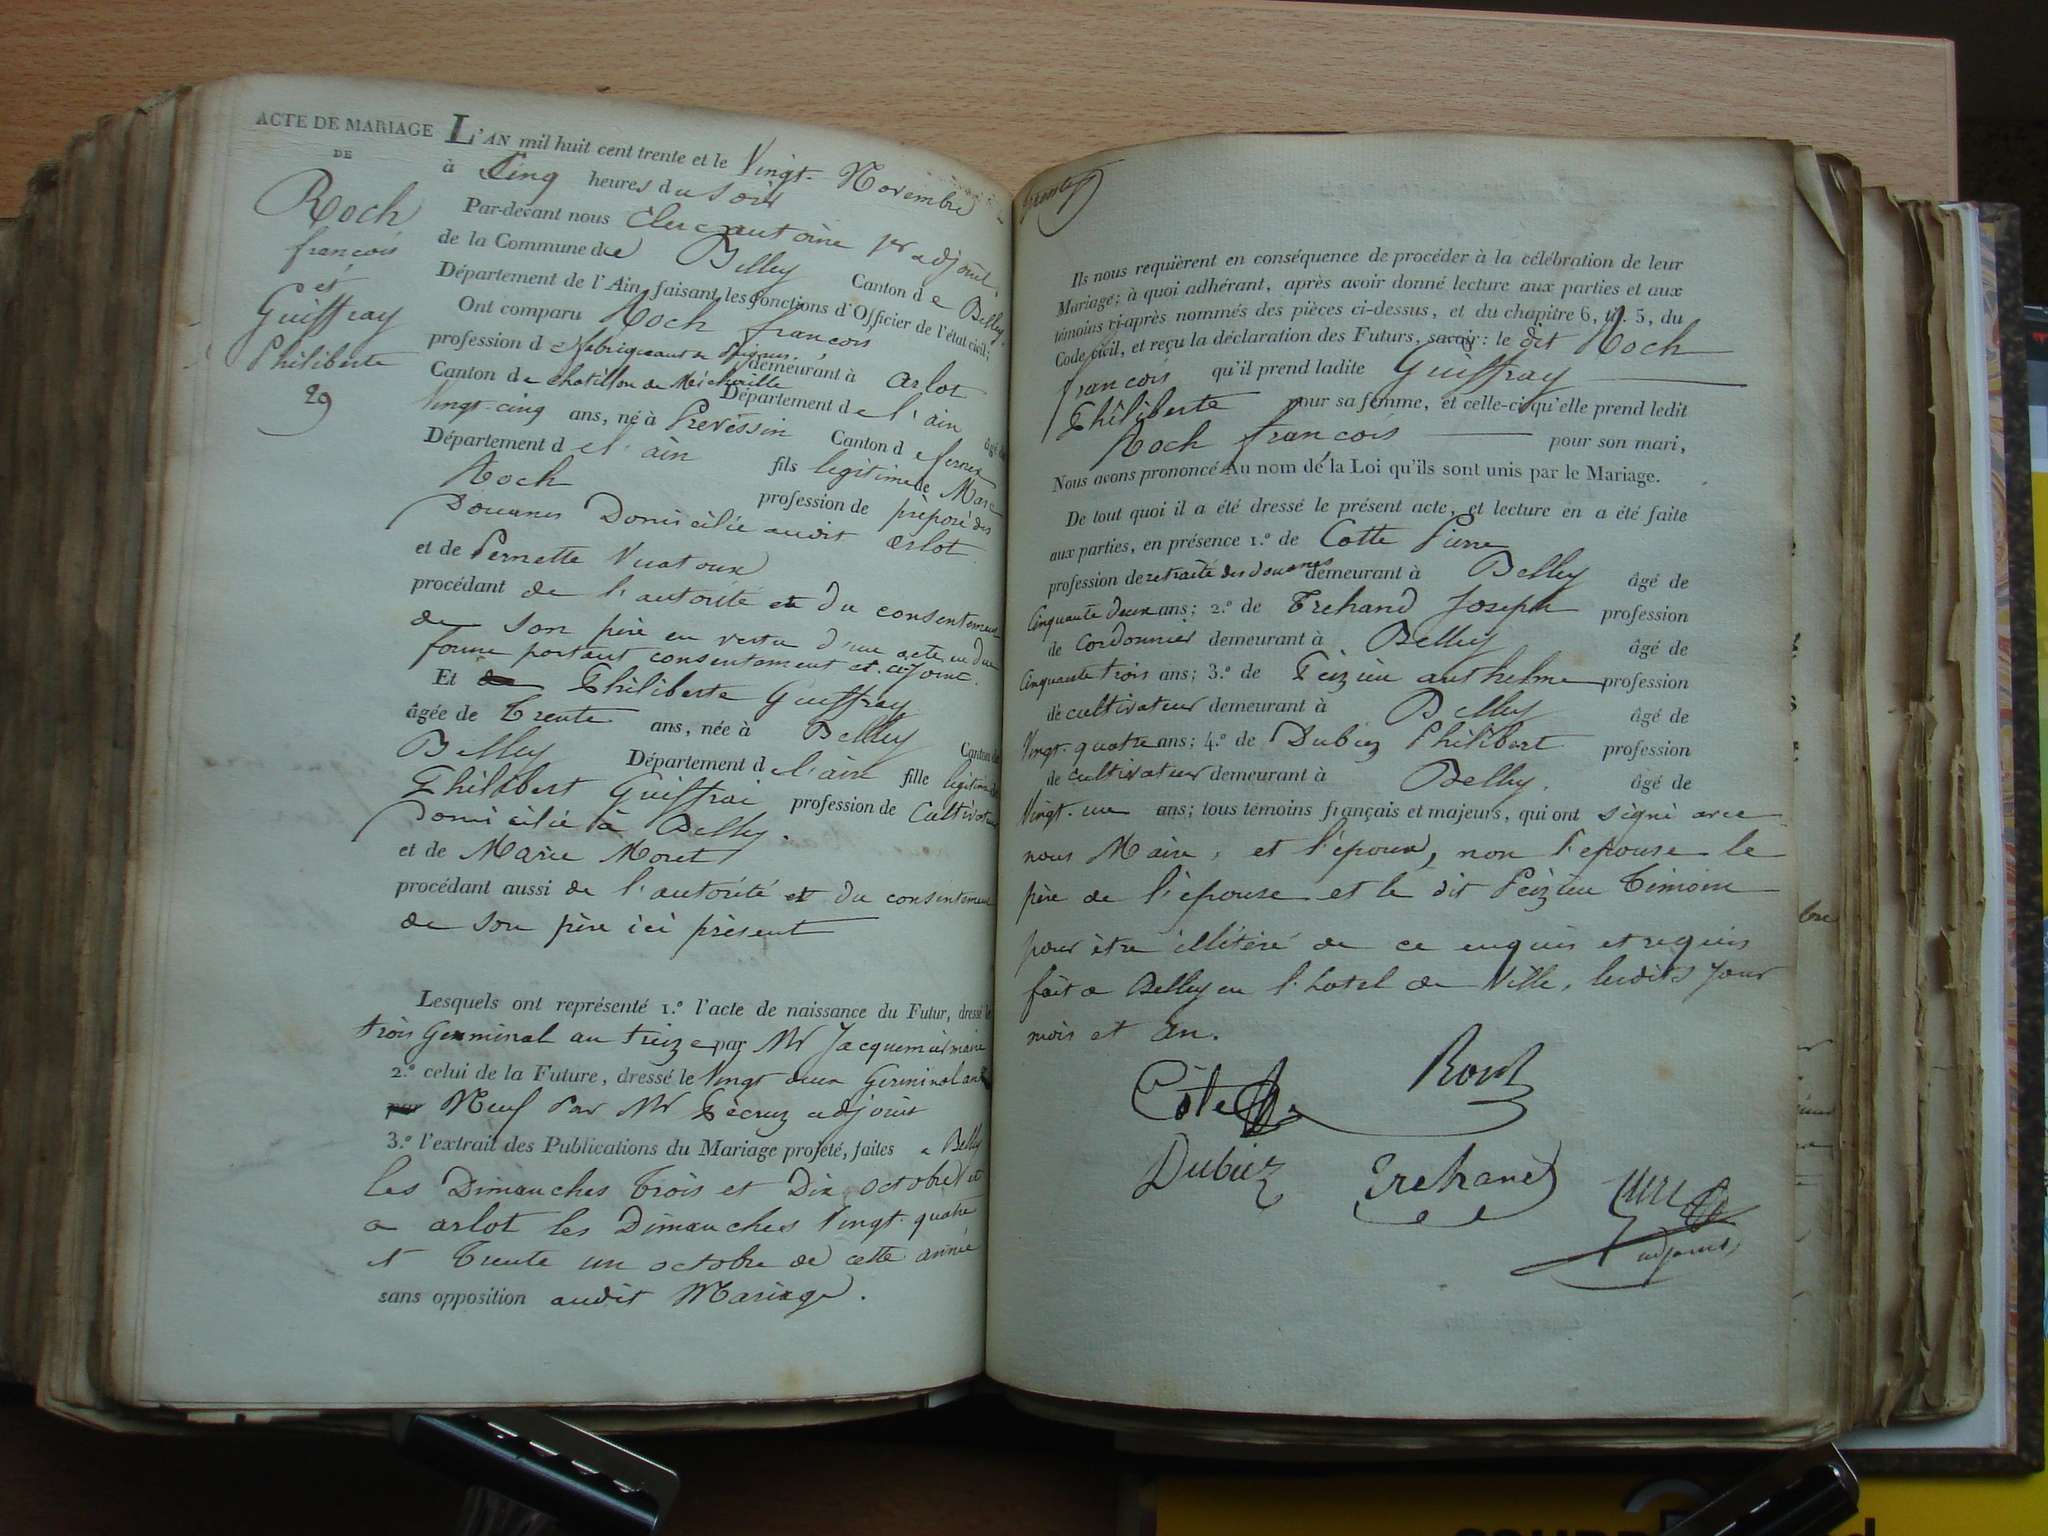 ACTE DE MARIAGE
DE
Roch
francois
et
Guiffray
Philiberte
29
L'AN mil huit cent trente et le Vingt Novembre
à Cinq heures du Soir
Par-devant nous Clerc antoine 1er adjoint
de la Commune de Belley Canton de Belley
Département de l'Ain, faisant les fonctions d'Officier de l'état civil;
Ont comparu Roch francois
profession de fabriquant de Peignes demeurant à arlot
Canton de chatillon de Michaille Département de l'ain âgé de
Vingt-cinq ans, né à Prevessin Canton de fernex
Département de l'ain fils legitime de Marc
Roch profession de prèposé des
Douanes Domicilié audit arlot
et de Pernette Vuatoux
procédant de l'autorité et du consentement
de son père en vertu d'un acte en due
forme portant consentement et ci-joint.
Et Philiberte Guiffray
âgée de Trente ans, née à Belley Canton de
Belley Département de l'ain fille legitime de
Philibert Guiffrai profession de Cultivateur
Domicilié à Belley.
et de Marie Moret
procédant aussi de l'autorité et du consentement
de son père ici présent
Lesquels ont représenté 1.º l'acte de naissance du Futur, dressé le
trois Germinal an treize par Mr Jacquemier maire
2.º celui de la Future, dressé le Vingt deux Germinal an
par Neuf Par Mr adjoint
3.º l'extrait des Publications du Mariage projeté, faites a Belley
les Dimanches Trois et Dix octobre et
a arlot les Dimanches Vingt-quatre
et Trente un octobre de cette année
sans opposition audit Mariage.
Ils nous requièrent en conséquence de procéder à la célébration de leur
Mariage; à quoi adhérant, après avoir donné lecture aux parties et aux
témoins ci-après nommés des pièces ci-dessus, et du chapitre 6, tit. 5, du
Code civil, et reçu la déclaration des Futurs, savoir: le dit Roch
francois qu'il prend ladite Guiffray
Philiberte pour sa femme, et celle-ci qu'elle prend ledit
Roch francois pour son mari,
Nous avons prononcé Au nom de la Loi qu'ils sont unis par le Mariage.
De tout quoi il a été dressé le présent acte, et lecture en a été faite
aux parties, en présence 1.º de Cotte Pierre
profession de retraité des douanes demeurant à Belley âgé de
Cinquante deux ans; 2.º de Trehand Joseph profession
de Cordonnier demeurant à Belley âgé de
Cinquante trois ans; 3.º de Peizieu anthelme profession
de cultivateur demeurant à Belley âgé de
Vingt-quatre ans; 4.º de Dubiez Philibert profession
de cultivateur demeurant à Belley. âgé de
Vingt-un ans; tous témoins français et majeurs, qui ont signé avec
nous Maire, et l'époux, non l'épouse le
père de l'épouse et le dit Peizieu Témoin
pour être illitéré de ce enquis et requis
fait a Belley en l'hotel de Ville, lesdits Jour
mois et an.
Cote Roch
Dubiez Trehand
adjoint